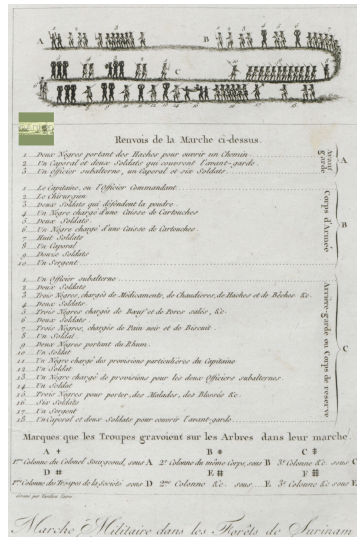 A
B
C
Renvois de la Marche ci-dessus.
1... Deux Nègres portant des Haches pour ouvrir un Chemin
2... Un Caporal et deux Soldats qui couvrent l'avant-garde
3... Un Officier subalterne, un Caporal et six Soldats.
Avant garde
A
1... Le Capitaine, ou l'Officier Commandant
2... Le Chirurgien
3... Deux Soldats qui défendent la poudre
4... Un Nègre chargé d'une Caisse de Cartouches
5... Deux Soldats
6... Un Nègre chargé d'une Caisse de Cartouches
7... Huit Soldats
8... Un Caporal
9... Douze Soldats
10... Un Sergent
Corps d'Armée
B
1... Un Officier subalterne
2... Deux Soldats
3... Trois Nègres, chargés de Médicamens, de Chaudières, de Haches et de Bêches &c.
4... Deux Soldats
5... Trois Nègres chargés de Bœuf et de Porcs salés, &c.
6... Deux Soldats
7... Trois Nègres, chargés de Pain noir et de Biscuit
8... Un Soldat
9... Deux Nègres portant du Rhum
10... Un Soldat
11... Un Nègre chargé des provisions particulières du Capitaine
12... Un Soldat
13... Un Nègre chargé de provisions pour les deux Officiers subalternes
14... Un Soldat
15... Trois Nègres pour porter, des Malades, des Blessés &c.
16... Six Soldats
17... Un Sergent
18... Un Caporal et deux Soldats pour couvrir l'avant-garde
Arrière-garde ou Corps de reserve
C
Marques que les Troupes gravoient sur les Arbres dans leur marche
A B C
1ere Colonne du Colonel Fourgeoud, sous A 2e Colonne du même Corps, sous B 3e Colonne &c. sous C
D E F
1ere Colonne des Troupes de la Société sous D 2me Colonne &c. sous E 3e Colonne &c sous F
Marche Militaire dans les Forêts de Surinam